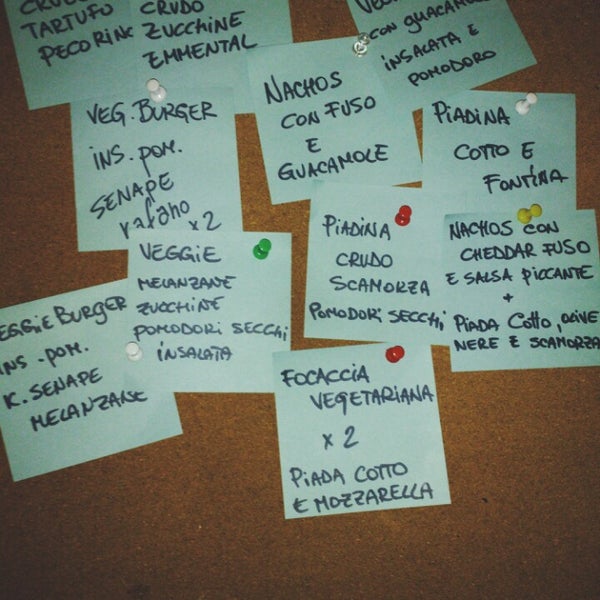 CRUDO
TARTUFO
PECORINO
CRUDO
ZUCCHINE
EMMENTAL
CON GUACAMOLE
INSALATA E
POMODORO
VEG. BURGER
INS. POM.
SENAPE
rafano x 2
NACHOS
CON FUSO
E
GUACAMOLE
PIADINA
COTTO E
FONTINA
VEGGIE
MELANZANE
ZUCCHINE
POMODORI SECCHI
INSALATA
PIADINA
CRUDO
SCAMORZA
POMODORI SECCHI
NACHOS CON
CHEDDAR FUSO
E SALSA PICCANTE
+
PIADA COTTO, OLIVE
NERE E SCAMORZA
EGGIE BURGER
INS. POM.
K. SENAPE
MELANZANE
FOCACCIA
VEGETARIANA
x 2
PIADA COTTO
E MOZZARELLA